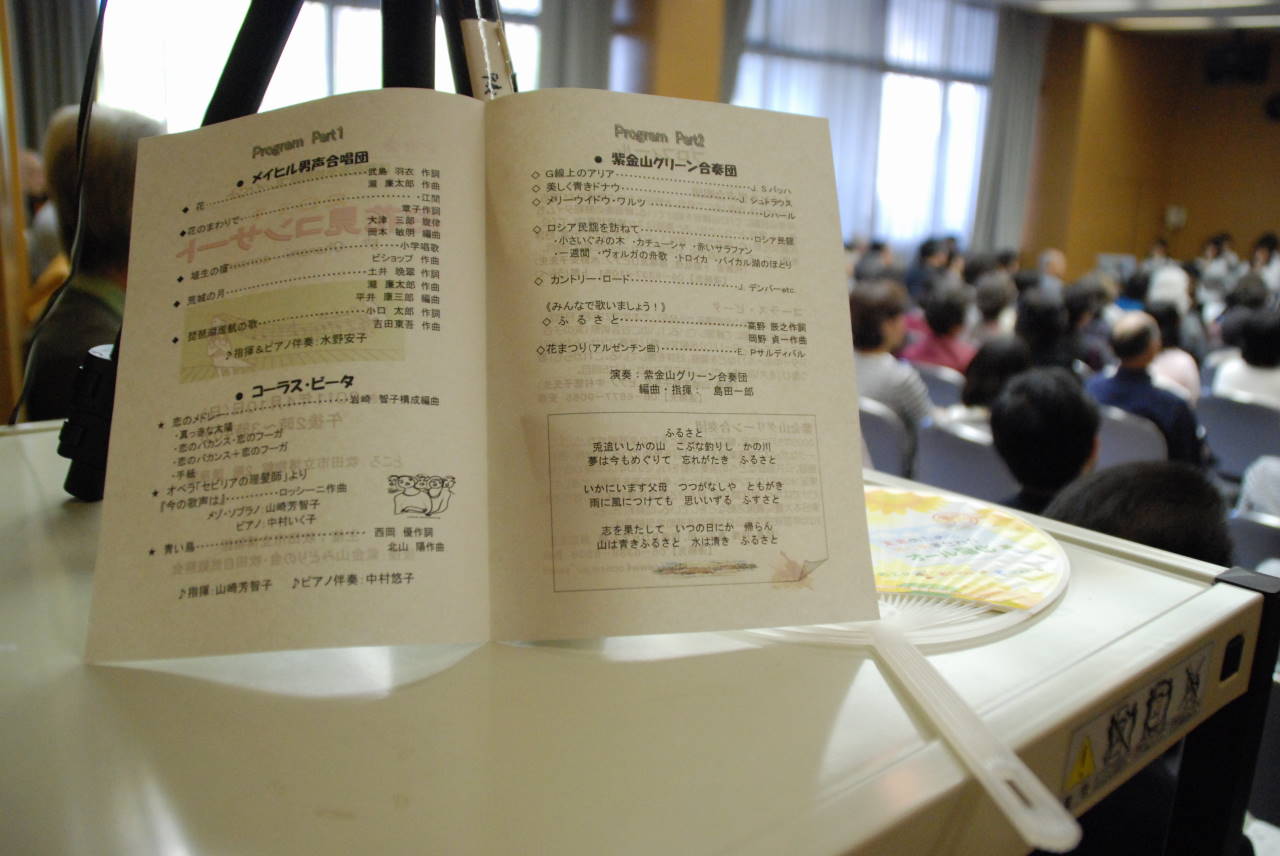 Program Part1
● メイヒル男声合唱団
◆ 花 武島 羽衣 作詞
瀧 廉太郎 作曲
◆花のまわりで 江間 章子作詞
大津 三郎 旋律
岡本 敏明 編曲
◆ 埴生の宿 小学唱歌
ビショップ 作曲
◆ 荒城の月 土井 晩翠 作詞
瀧 廉太郎 作曲
平井 康三郎 編曲
◆ 琵琶湖周航の歌 小口 太郎 作詞
吉田東吾 作曲
♪指揮&ピアノ伴奏:水野安子
● コーラス・ピータ
★ 恋のメドレー 岩崎 智子構成編曲
・真っ赤な太陽
・恋のバカンス・恋のフーガ
・恋のバカンス+恋のフーガ
・手紙
★ オペラ「セビリアの理髪師」より
『今の歌声は』 ロッシーニ作曲
メゾ・ソプラノ:山崎芳智子
ピアノ:中村いく子
★ 青い鳥 西岡 優作詞
北山 陽作曲
♪指揮:山崎芳智子 ♪ピアノ伴奏:中村悠子
Program Part2
● 紫金山グリーン合奏団
◇ G線上のアリア J.Sバッハ
◇ 美しく青きドナウ J.シュトラウス
◇ メリーウイドウ・ワルツ レハール
◇ ロシア民謡を訪ねて ロシア民謡
・小さいぐみの木 ・カチューシャ ・赤いサラファン
・一週間 ・ヴォルガの舟歌 ・トロイカ ・バイカル湖のほとり
◇ カントリー・ロード J. デンバーetc.
《みんなで歌いましょう!》
◇ ふ る さ と 高野 辰之作詞
岡野 貞一作曲
◇花まつり(アルゼンチン曲) E. Pサルディバル
演奏:紫金山グリーン合奏団
編曲・指揮: 島田一郎
ふるさと
兎追いしかの山 こぶな釣りし かの川
夢は今もめぐりて 忘れがたき ふるさと
いかにいます父母 つつがなしや ともがき
雨に風につけても 思いいずる ふすさと
志を果たして いつの日にか 帰らん
山は青きふるさと 水は清き ふるさと